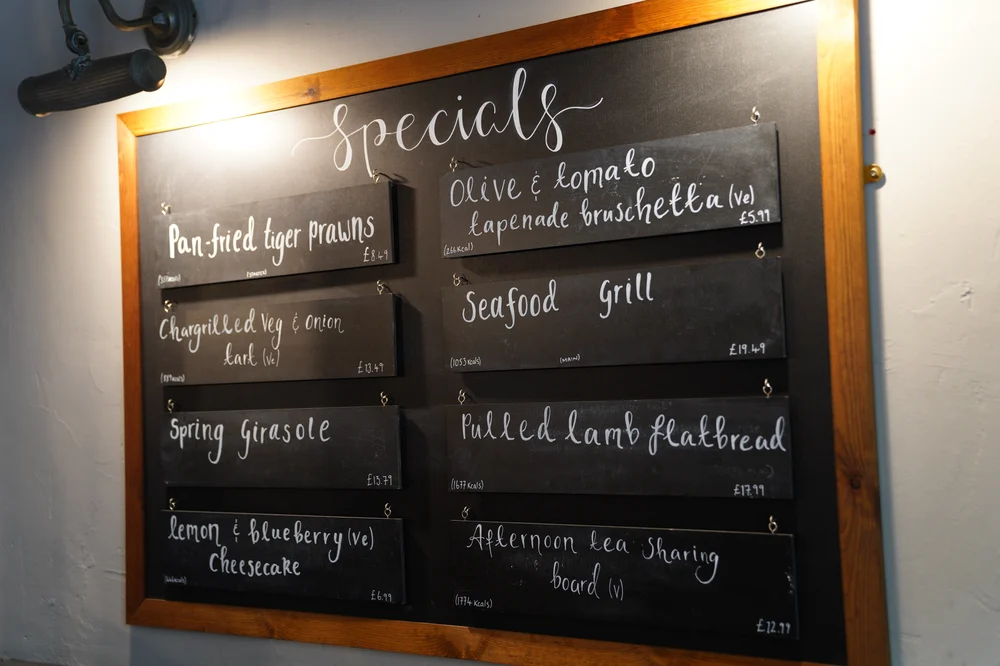 Specials
Pan-fried tiger prawns
£8.49
Chargrilled Veg & Onion
tart (ve)
£13.49
Spring Girasole
£13.79
lemon & blueberry (ve)
Cheesecake
£6.99
Olive & tomato
tapenade bruschetta (ve)
£5.99
(266kcal)
Seafood Grill
(1053kcals)
(MAIN)
£19.49
Pulled lamb flatbread
(1677kcals)
£17.99
Afternoon tea Sharing
board (v)
(1774kcals)
£22.99